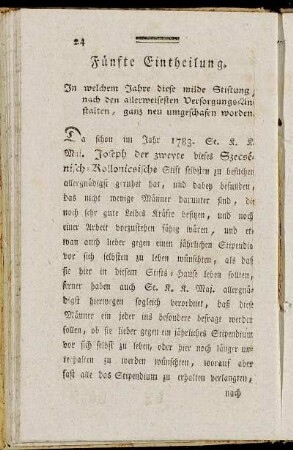 24
Fünfte Eintheilung.
In welchem Jahre diese milde Stiftung,
nach den allerweisesten Versorgungs-An-
stalten, ganz neu umgeschafen worden.
Da schon im Jahr 1783. Se. K. K.
Mai. Joseph der zweyte dieses Szecsé-
nisch-Kollonicsische Stift selbsten zu besuchen
allergnädigst geruhet har, und dabey befunden,
das nicht wenige Männer darunter sind, die
noch sehr gute Leibes Kräfte besitzen, und noch
einer Arbeit vorzustehen fähig wären, und et-
wan auch lieber gegen einen jährlichen Stipendio
vor sich selbsten zu leben wünschten, als daß
sie hier in diesem Stifts-Hause leben sollten,
ferner haben auch Se. K. K. Maj. allergnä-
digst hierwegen sogleich verordnet, daß diese
Männer ein jeder ins besondere befragt werden
sollen, ob sie lieber gegen ein jährliches Stipendium
vor sich selbst zu leben, oder hier noch länger un-
terhalten zu werden wünschten, worauf aber
fast alle das Stipendium zu erhalten verlangten,
nach